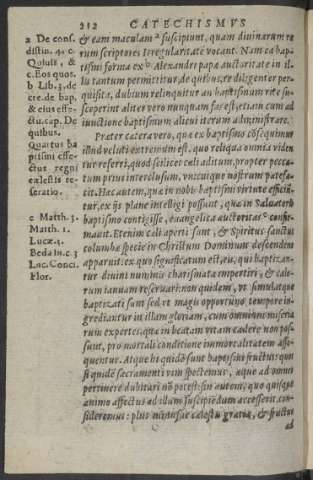 212 CATECHISMVS
a De cons.
distin. 4. c.
Quiuis, &
c. Eos quos.
b Lib. 3. de
cre. de bap.
& eius effe-
ctu. cap. De
quibus.
Quartus ba
ptismi effe-
ctus regni
cælestis re-
seratio.
c Matth. 3.
Matth. 1.
Lucæ 4.
Beda in c. 3
Luc. Conci.
Flor.
& eam maculam a suscipiunt, quam diuinarum re
rum scriptores Irregularitatē vocant. Nam ea bap-
tismi forma ex b Alexandri papæ auctoritate in il-
lis tantum permittitur, de quibus, re diligenter per-
quisita, dubium relinquitur an baptismum ritè su-
sceperint aliter verò nunquam fas est, etiam cum ad
iunctione baptismum alicui iterum administrare.
Præter cætera verò, quæ ex baptismo cōsequimur
illud veluti extremum est, quo reliqua omnia viden
tur referri, quòd scilicet cæli aditum, propter pecca-
tum prius interclusum, vnicuique nostrum patefa-
cit. Hæc autem, quæ in nobis baptismi virtute effici
tur, ex ijs planè intelligi possunt, quæ in Saluatoris
baptismo contigisse, euangelica auctoritas c confir-
mauit. Etenim cæli aperti sunt, & Spiritus sanctus
columbæ specie in Christum Dominum descendens
apparuit: ex quo significatum est, eis, qui baptizan-
tur diuini numinis charismata impertiri, & cælo-
rum ianuam reserari: non quidem, vt simulatque
baptizati sunt sed vt magis opportuno tempore in-
grediantur in illam gloriam, cum omnibus miseria
rum expertes, quæ in beatam vitam cadere non pos-
sunt, pro mortali conditione immortalitatem asse-
quentur. Atque hi quidē sunt baptismi fructus: quos
si quidē sacramenti vim spectemus, æquè ad omnes
pertinere dubitari nō potest: sin autem, quo quisque
animo affectus ad illum suscipiendum accesserit, con-
sideremus: plus minusue cælestis gratiæ, & fructus
ad